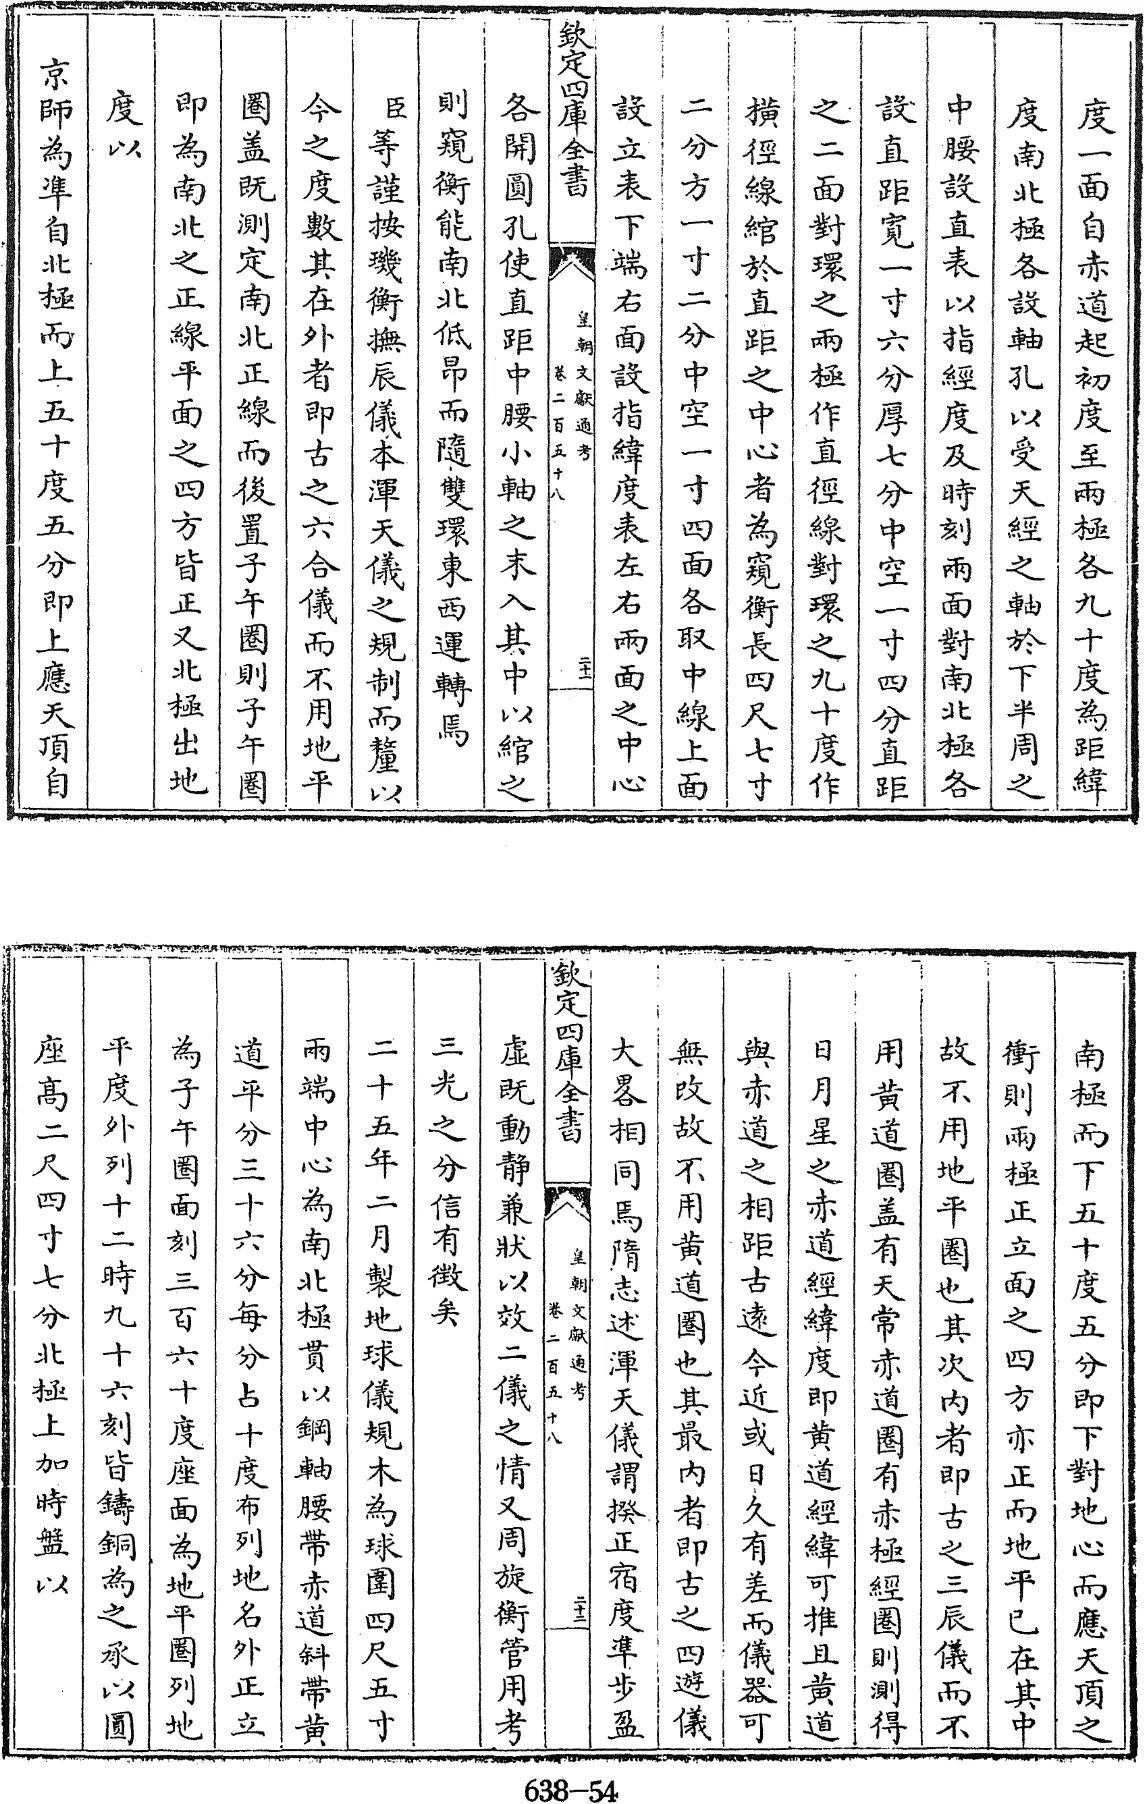 度一面自赤道起初度至兩極各九十度為距緯
度南北極各設軸孔以受天經之軸於下半周之
中腰設直表以指經度及時刻兩面對南北極各
設直距寛一寸六分厚七分中空一寸四分直距
之二面對環之兩極作直徑線對環之九十度作
橫徑線綰於直距之中心者為窺衡長四尺七寸
二分方一寸二分中空一寸四面各取中線上面
設立表下端右面設指緯度表左右兩面之中心
欽定四庫全書
皇朝文獻通考
卷二百五十八
二十二
各開圓孔使直距中腰小軸之末入其中以綰之
則窺衡能南北低昂而隨雙環東西運轉焉
臣等謹按璣衡撫辰儀本渾天儀之規制而釐以
今之度數其在外者即古之六合儀而不用地平
圈盖既測定南北正線而後置子午圈則子午圈
即為南北之正線平面之四方皆正又北極出地
度以
京師為凖自北極而上五十度五分即上應天頂自
南極而下五十度五分即下對地心而應天頂之
衝則兩極正立面之四方亦正而地平已在其中
故不用地平圈也其次内者即古之三辰儀而不
用黄道圈盖有天常赤道圈有赤極經圈則測得
日月星之赤道經緯度即黄道經緯可推且黄道
與赤道之相距古遠今近或日久有差而儀器可
無改故不用黄道圈也其最内者即古之四遊儀
大畧相同焉隋志述渾天儀謂揆正宿度凖步盈
欽定四庫全書
皇朝文獻通考
卷二百五十八
二十三
虚既動靜兼狀以效二儀之情又周旋衡管用考
三光之分信有徴矣
二十五年二月製地球儀規木為球圍四尺五寸
兩端中心為南北極貫以鋼軸腰帶赤道斜帶黄
道平分三十六分每分占十度布列地名外正立
為子午圈面刻三百六十度座面為地平圈列地
平度外列十二時九十六刻皆鑄銅為之承以圓
座髙二尺四寸七分北極上加時盤以
638-54